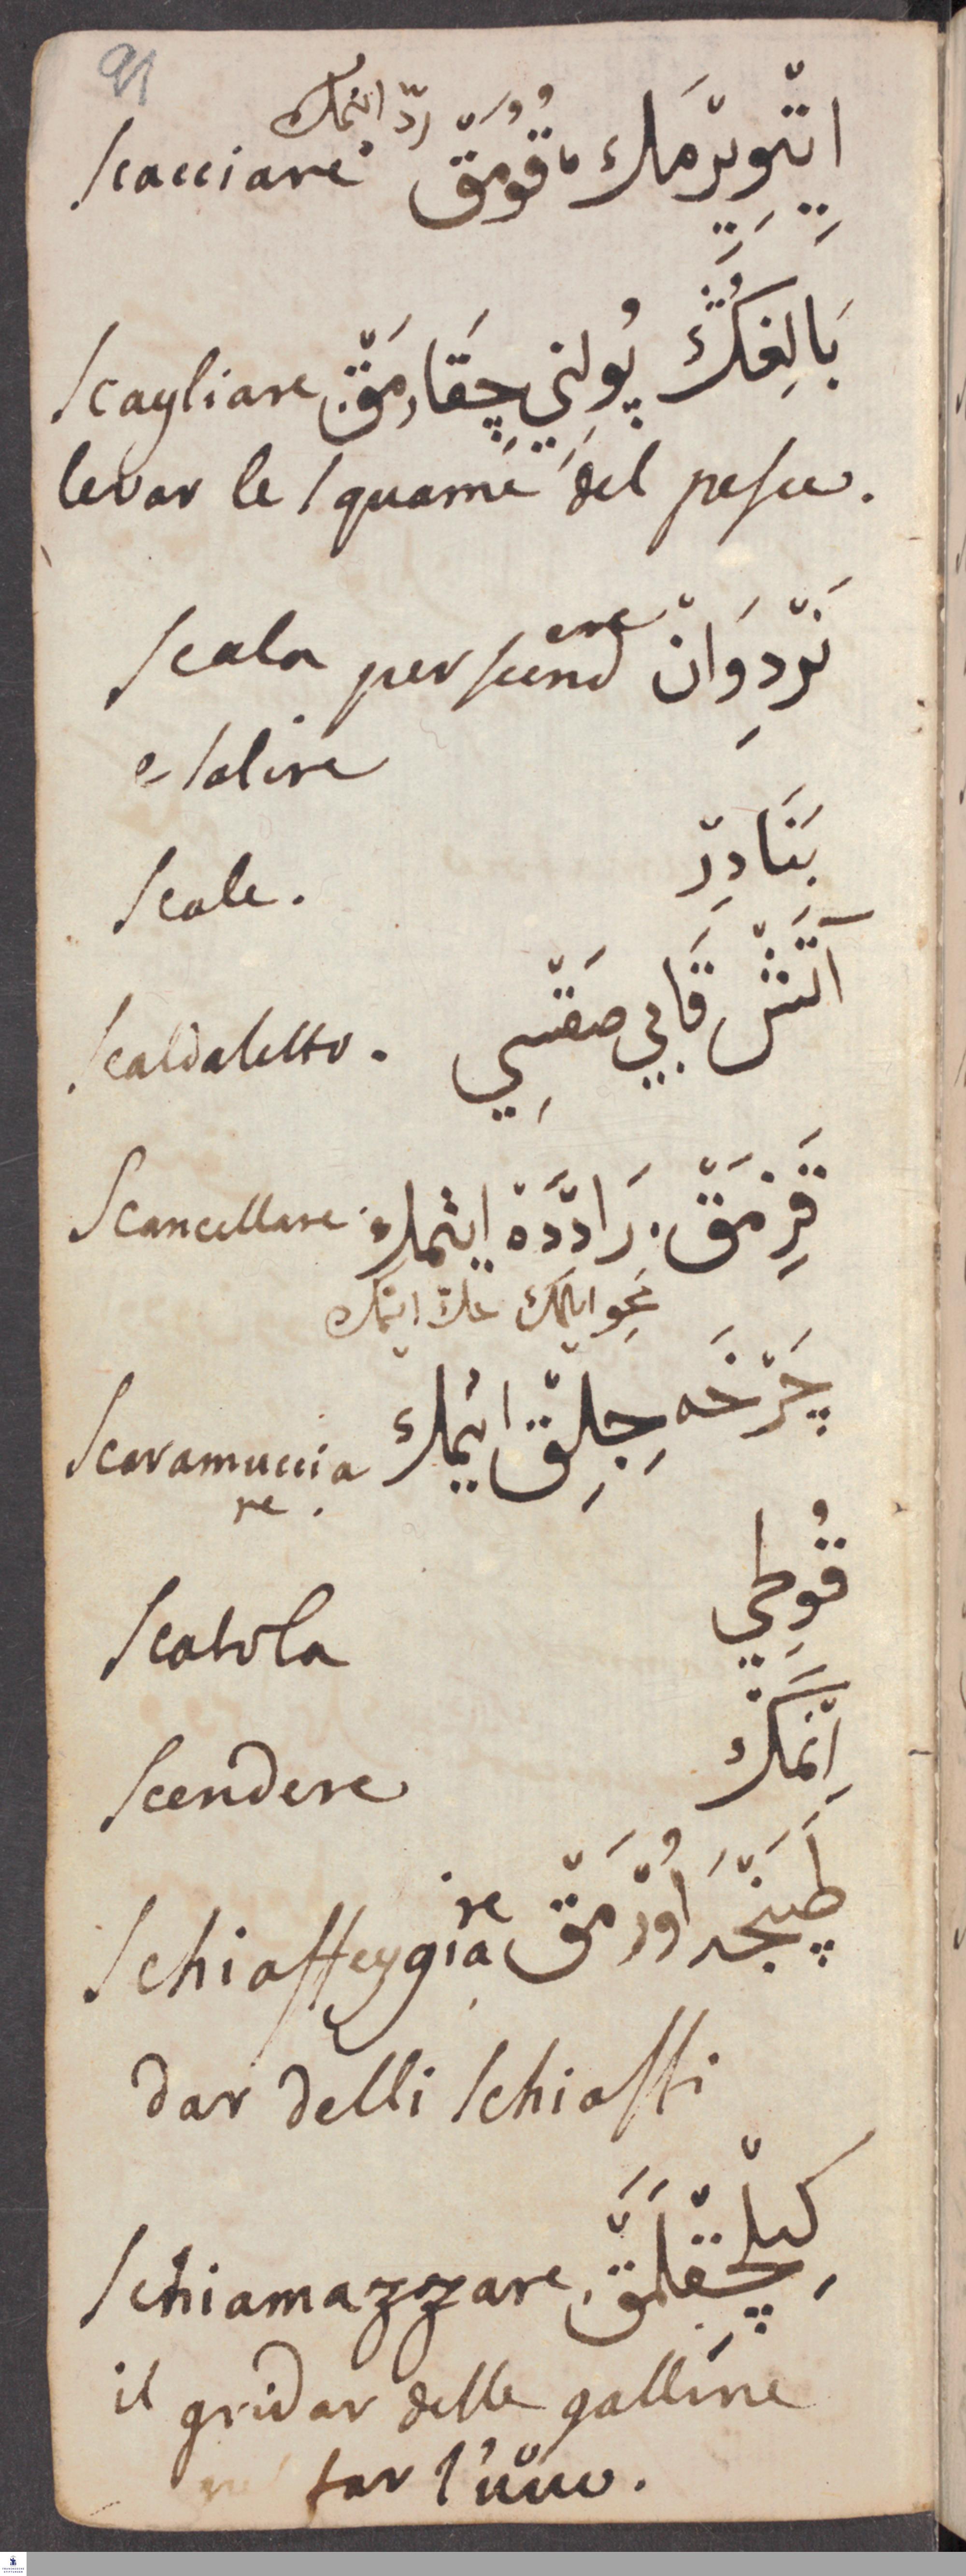 91
ردّ ایتمك
Scacciare اِیتِّویِرْمَك، قُوُمَقْ
Scagliare بَالِغِڭْ پُولِنِي چِقَارمَقْ
levar le squame del pesce.
Scala per scendere نَرْدِوَانْ
e salire
Scale. بَنَادِرْ
Scaldaletto. آتَشْ قَابِي صَقْسِي
Scancellare. قَزِمَقْ. رَادَّدَه ایتمك
محو ایلمك حكّ ایتمك
Scaramuccia چَرْخَه جِلِقْ ایتمك
re.
Scatola قُوطِي
Scendere اِنْمَكْ
Schiaffeggiare طَپَنْجَه اُورْمَقْ
dar delli schiaffi
Schiamazzare
il gridar delle galline
far l'uuo.